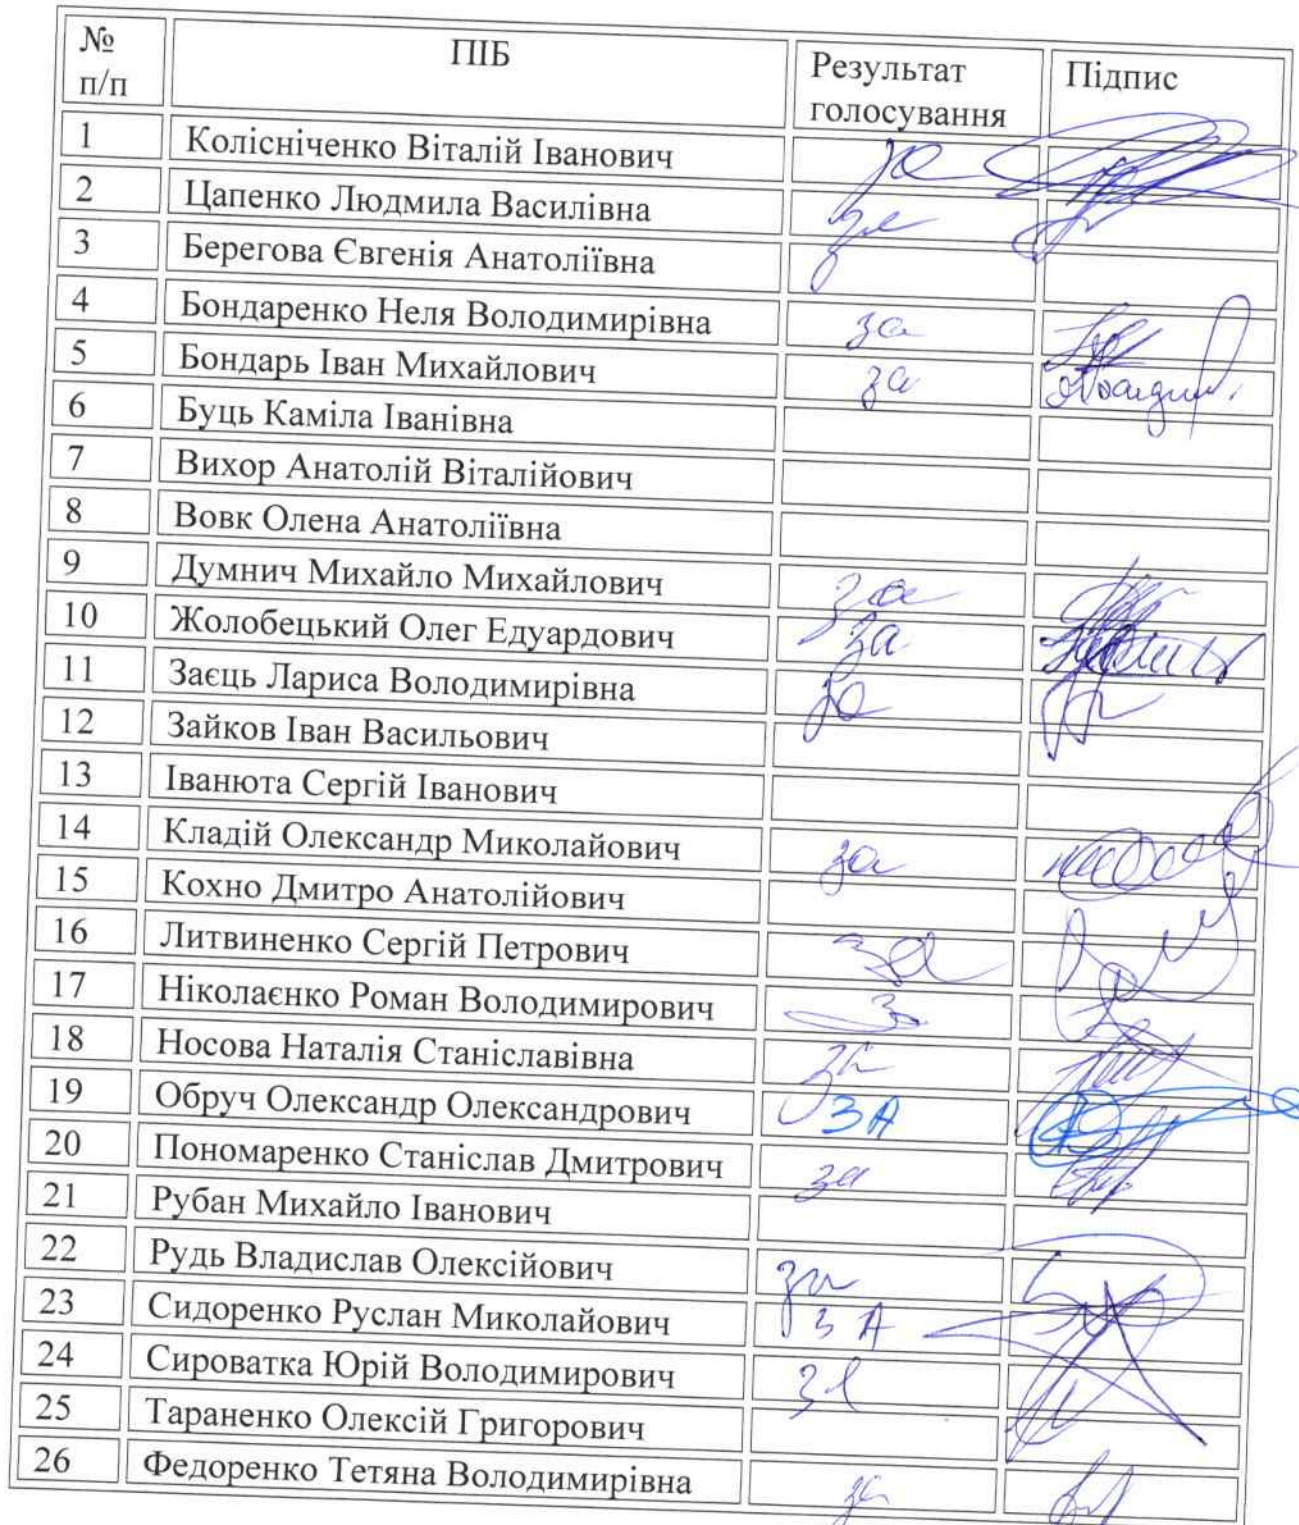 № п/п ПІБ Результат голосування Підпис
1 Колісніченко Віталій Іванович за
2 Цапенко Людмила Василівна за
3 Берегова Євгенія Анатоліївна
4 Бондаренко Неля Володимирівна за
5 Бондарь Іван Михайлович за
6 Буць Каміла Іванівна
7 Вихор Анатолій Віталійович
8 Вовк Олена Анатоліївна
9 Думнич Михайло Михайлович за
10 Жолобецький Олег Едуардович за
11 Заєць Лариса Володимирівна за
12 Зайков Іван Васильович
13 Іванюта Сергій Іванович
14 Кладій Олександр Миколайович за
15 Кохно Дмитро Анатолійович
16 Литвиненко Сергій Петрович за
17 Ніколаєнко Роман Володимирович
18 Носова Наталія Станіславівна за
19 Обруч Олександр Олександрович ЗА
20 Пономаренко Станіслав Дмитрович за
21 Рубан Михайло Іванович
22 Рудь Владислав Олексійович за
23 Сидоренко Руслан Миколайович ЗА
24 Сироватка Юрій Володимирович за
25 Тараненко Олексій Григорович
26 Федоренко Тетяна Володимирівна за